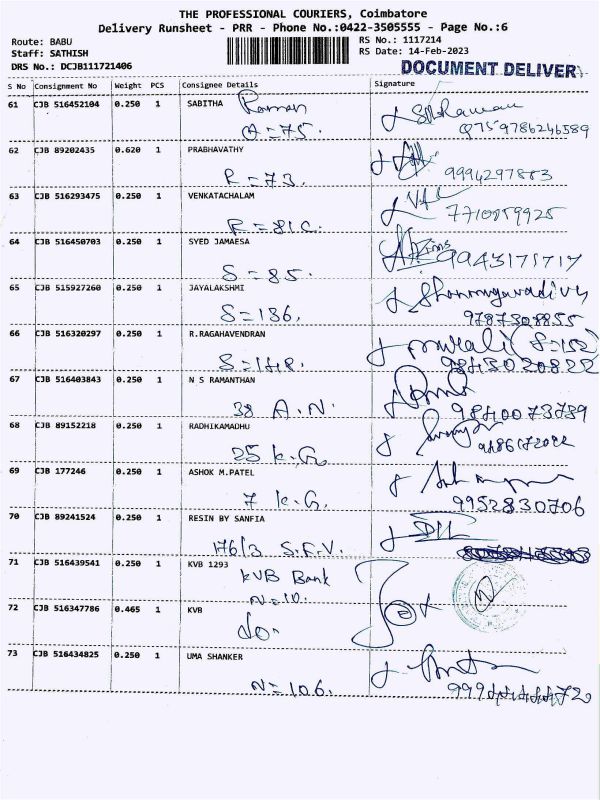 THE PROFESSIONAL COURIERS, Coimbatore
Delivery Runsheet - PRR - Phone No.:0422-3505555 - Page No.:6
Route: BABU
RS No.: 1117214
Staff: SATHISH
RS Date: 14-Feb-2023
DRS No.: DCJB111721406
DOCUMENT DELIVER
S No Consignment No Weight PCS Consignee Details Signature
61 CJB 516452104 0.250 1 SABITHA Raman
A=75.
9786246589
62 CJB 89202435 0.620 1 PRABHAVATHY
R=73.
9994297883
63 CJB 516293475 0.250 1 VENKATACHALAM
R=81C.
7710859925
64 CJB 516450703 0.250 1 SYED JAMAESA
S=85.
9943171717
65 CJB 515927260 0.250 1 JAYALAKSHMI Shanmugavadivu
S=136.
9787308855
66 CJB 516320297 0.250 1 R.RAGAHAVENDRAN murali (S=152)
S=148.
9843020822
67 CJB 516403843 0.250 1 N S RAMANTHAN
38 A.N.
9840073789
68 CJB 89152218 0.250 1 RADHIKAMADHU
25 K.G.
69 CJB 177246 0.250 1 ASHOK M.PATEL
7 K.G.
9952830706
70 CJB 89241524 0.250 1 RESIN BY SANFIA
176/3 S.F.V.
71 CJB 516439541 0.250 1 KVB 1293
KVB Bank
N=10.
72 CJB 516347786 0.465 1 KVB
do.
73 CJB 516434825 0.250 1 UMA SHANKER
N=106.